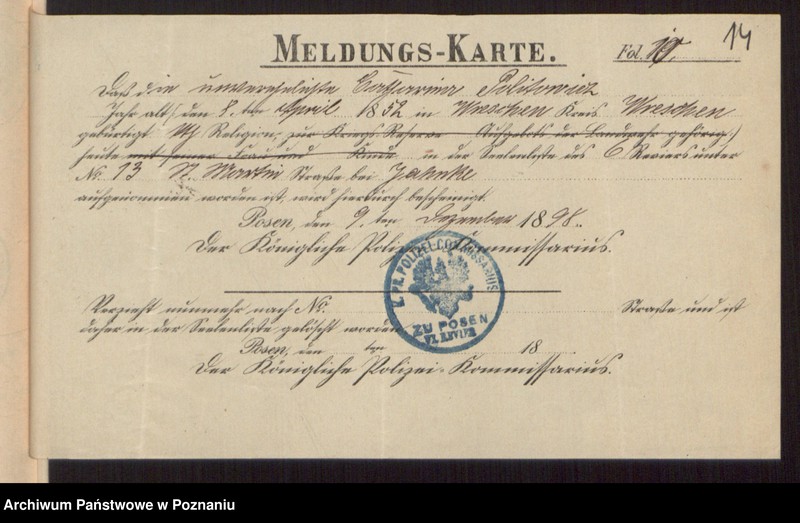 14
MELDUNGS-KARTE. Fol.
Daß die unverehelichte Catharina Politowicz
Jahr alt/ den 8. ten April 1852 in Wreschen Kreis Wreschen
gebürtigt Religion, zur Kriegs-Reserve Aufgebots der Landwehr gehörig,)
heute mit seiner Frau und Kinde in der Seelenliste des 6 Reviers unter
No. 13 St Martin Straße bei Jahnke
aufgenommen worden ist, wird hierdurch bescheinigt.
Posen, den 9. ten Dezember 1898.
Der Königliche Polizei-Kommissarius.
K. PR. POLIZEI-COMMISSARIUS
ZU POSEN
VI. REVIER
Verzieht nunmehr nach No. Straße und ist
daher in der Seelenliste gelöscht worden
Posen, den ten 18
Der Königliche Polizei-Kommissarius.
Archiwum Państwowe w Poznaniu